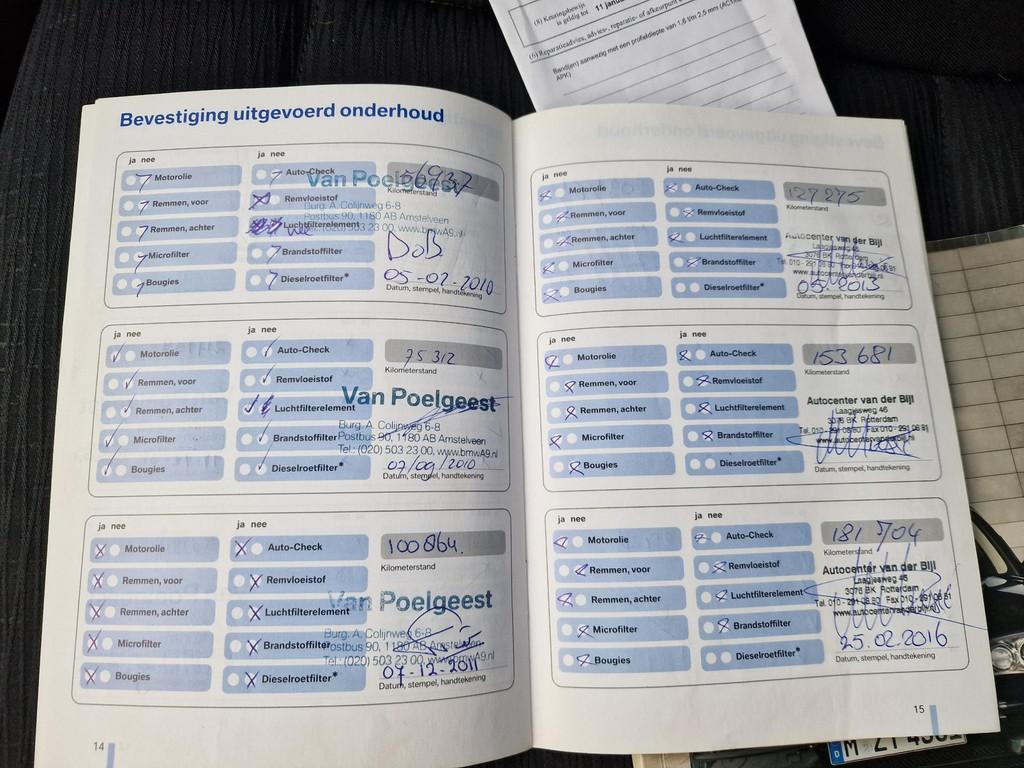 (8) Keuringsbewijs
is geldig tot 11
(6) Reparatieadvies, advies-, reparatie- of afkeurpunt
Band(en) aanwezig met een profieldiepte van 1,6 t/m 2,5 mm
APK)
Bevestiging uitgevoerd onderhoud
ja nee
ja nee
Motorolie
Auto-Check
56937
Van Poelgeest
Kilometerstand
Remmen, voor
Remvloeistof
Burg. A. Colijnweg 6-8
Postbus 90, 1180 AB Amstelveen
Remmen, achter
Luchtfilterelement
Tel.: (020) 503 23 00, www.bmwA9.nl
Microfilter
Brandstoffilter
DoB
Bougies
Dieselroetfilter*
05-02-2010
Datum, stempel, handtekening
ja nee
ja nee
Motorolie
Auto-Check
75 312
Kilometerstand
Remmen, voor
Remvloeistof
Van Poelgeest
Remmen, achter
Luchtfilterelement
Burg. A. Colijnweg 6-8
Microfilter
Brandstoffilter
Postbus 90, 1180 AB Amstelveen
Tel.: (020) 503 23 00, www.bmwA9.nl
Bougies
Dieselroetfilter*
07/09/2010
Datum, stempel, handtekening
ja nee
ja nee
Motorolie
Auto-Check
100864.
Kilometerstand
Remmen, voor
Remvloeistof
Van Poelgeest
Remmen, achter
Luchtfilterelement
Burg. A. Colijnweg 6-8
Microfilter
Brandstoffilter
Postbus 90, 1180 AB Amstelveen
Tel.: (020) 503 23 00, www.bmwA9.nl
Bougies
Dieselroetfilter*
07-12-2011
Datum, stempel, handtekening
14
ja nee
ja nee
Motorolie
Auto-Check
127275
Kilometerstand
Remmen, voor
Remvloeistof
Remmen, achter
Luchtfilterelement
Autocenter van der Bijl
Laagjesweg 46
3076 BK Rotterdam
Microfilter
Brandstoffilter
www.autocentervanderbijl.nl
Bougies
Dieselroetfilter*
05-2013
Datum, stempel, handtekening
ja nee
ja nee
Motorolie
Auto-Check
153 681
Kilometerstand
Remmen, voor
Remvloeistof
Remmen, achter
Luchtfilterelement
Autocenter van der Bijl
Laagjesweg 46
3076 BK Rotterdam
Microfilter
Brandstoffilter
Tel. 010 - 291 06 80 Fax 010 - 291 06 81
www.autocentervanderbijl.nl
Bougies
Dieselroetfilter*
Datum, stempel, handtekening
ja nee
ja nee
Motorolie
Auto-Check
181 704
Kilometerstand
Remmen, voor
Remvloeistof
Autocenter van der Bijl
Laagjesweg 46
Remmen, achter
Luchtfilterelement
3076 BK Rotterdam
Tel. 010 - 291 06 80 Fax 010 - 291 06 81
www.autocentervanderbijl.nl
Microfilter
Brandstoffilter
25.02.2016
Bougies
Dieselroetfilter*
Datum, stempel, handtekening
15
D